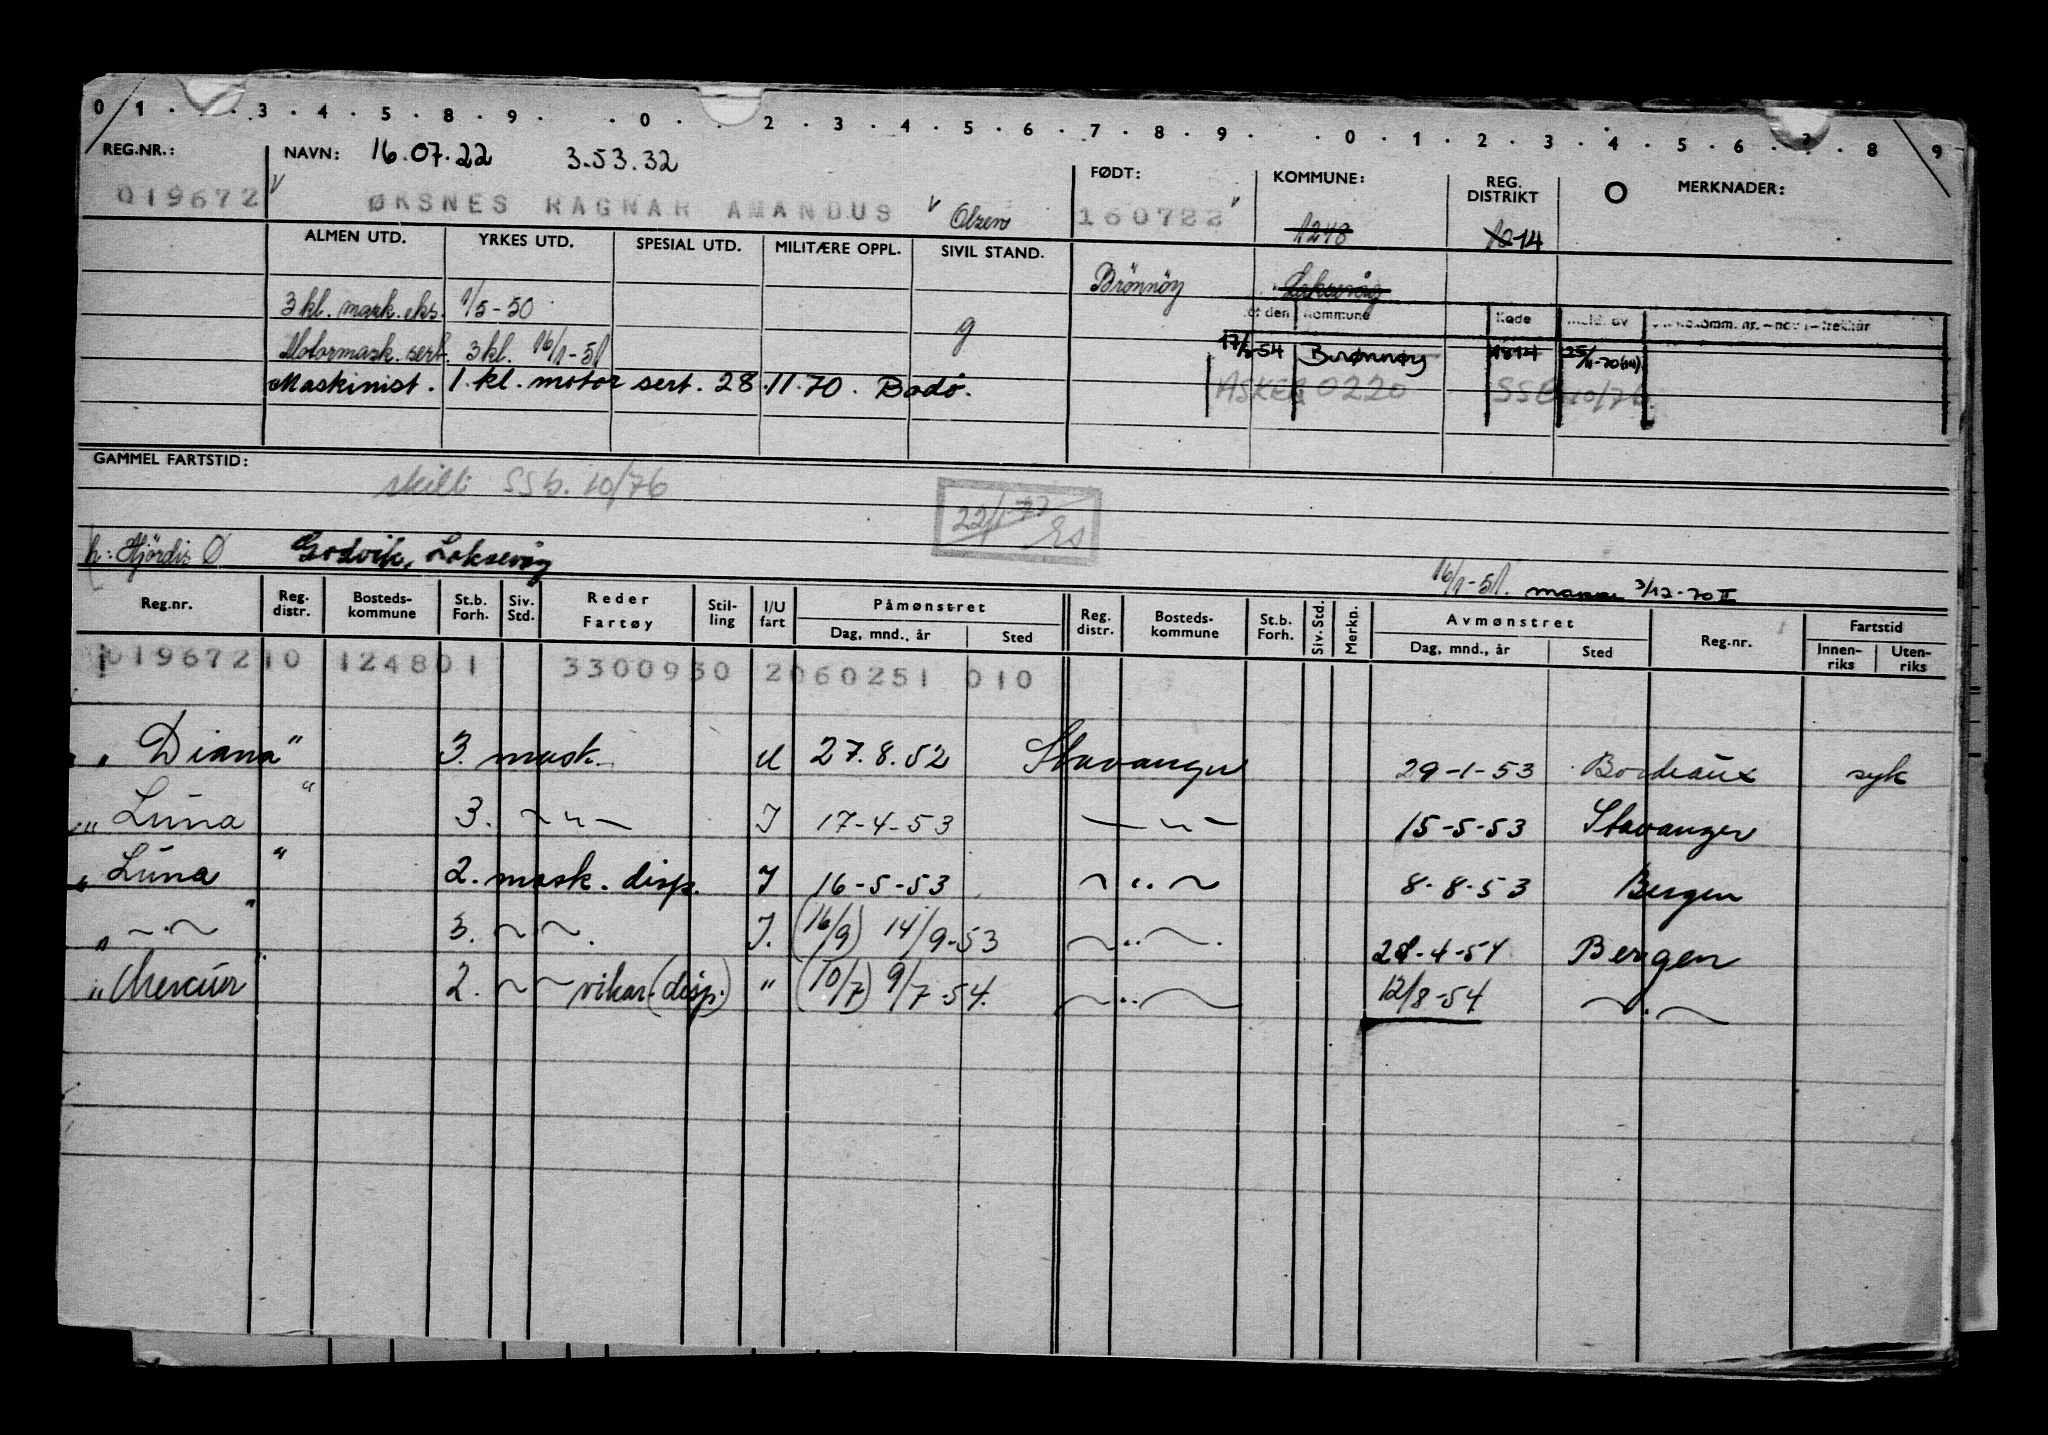 0 1 . . 3 . 4 . 5 . 8 . 9 . . 0 . . 2 . 3 . 4 . 5 . 6 . 7 . 8 . 9 . . 0 . 1 . 2 . 3 . 4 . 5 . 6 . ? . 8 . 9
REG.NR.: NAVN: 16.07.22 3.53.32 FØDT: KOMMUNE: REG. DISTRIKT O MERKNADER:
019672 ØKSNES RAGNAR AMANDUS Olsen 160722 1248 10 14
ALMEN UTD. YRKES UTD. SPESIAL UTD. MILITÆRE OPPL. SIVIL STAND. Brönnöy Laksevåg
3 kl. mask. eks. 1/5-50 g
den Kommune Kode Meld. av
Motormask. sert. 3 kl. 16/1-51 17/-54 Brønnøy 1814 25/11-70
Maskinist. 1. kl. motor sert. 28.11.70. Bodø. ASKER 0220 SSB 10/76
GAMMEL FARTSTID:
skilt SSb. 10/76 22/1-77 Es
h: Hjördis Ø Godvik, Laksevåg
16/1-51. 3/12-70 II
Reg.nr. Reg. distr. Bosteds-kommune St.b. Forh. Siv. Std. Reder Fartøy Stil-ling I/U fart Påmønstret Dag, mnd., år Sted Reg. distr. Bosteds-kommune St.b. Forh. Siv. Std. Merkn. Avmønstret Dag, mnd., år Sted Reg.nr. Fartstid Innen-riks Uten-riks
01967210 124801 3300930 2060251 010
" Diana " 3. mask. U 27.8.52 Stavanger 29-1-53 Bordeaux syk
" Luna " 3. ~ " ~ I 17-4-53 — " — 15-5-53 Stavanger
" Luna " 2. mask. disp. I 16-5-53 ~ " ~ 8-8-53 Bergen
" ~ " ~ " 3. ~ ~. I. (16/9) 14/9-53 ~ " ~. 28-4-54 Bergen
" Mercur " 2. ~ ~ vikar (disp.) " (10/7) 9/7-54. ~ " ~ 12/8-54 ~ " ~